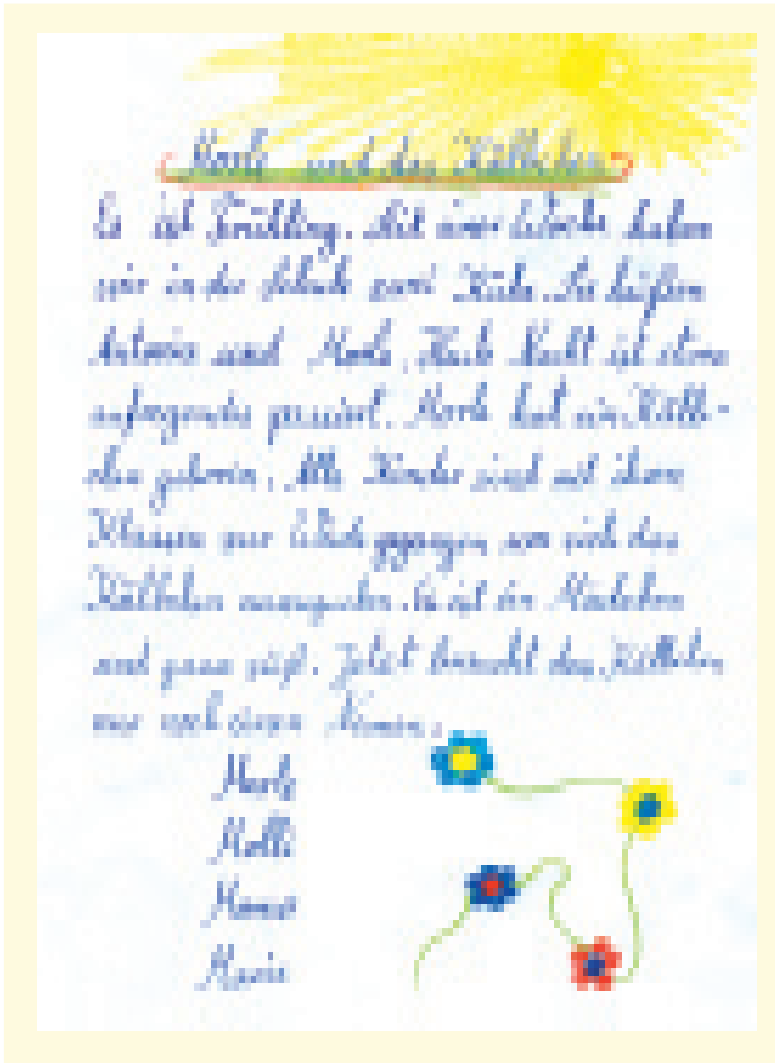 und das Kälbchen
Es ist Frühling. Seit einer Woche haben
wir in der Schule zwei Kühe. Sie heißen
und Heute Nacht ist etwas
aufregendes passiert. hat ein Kälb-
chen geboren. Alle Kinder sind mit ihren
Klassen zur Weide gegangen um sich das
Kälbchen anzugucken. Es ist ein Mädchen
und ganz süß. Jetzt braucht das Kälbchen
nur noch einen Namen.
Molli